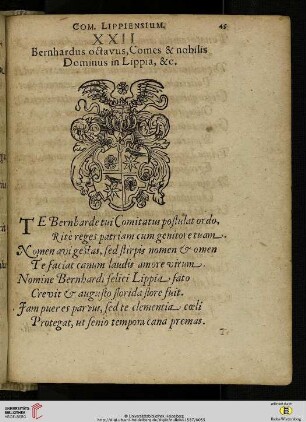 COM. LIPPIENSIUM. 45
XXII
Bernhardus octavus, Comes & nobilis
Dominus in Lippia, &c.
TE Bernharde tui Comitatus postulat ordo,
Rite reges patriam cum genitore tuam.
Nomen avi gestas, sed stirpis nomen & omen
Te faciat canum laudis amore virum.
Nomine Bernhardi felici Lippia fato
Crevit & augusto florida flore fuit.
Jam puer es parvus, sed te clementia cœli
Protegat, ut senio tempora cana premas.
UNIVERSITÄTS-
BIBLIOTHEK
HEIDELBERG
© Universitätsbibliothek Heidelberg